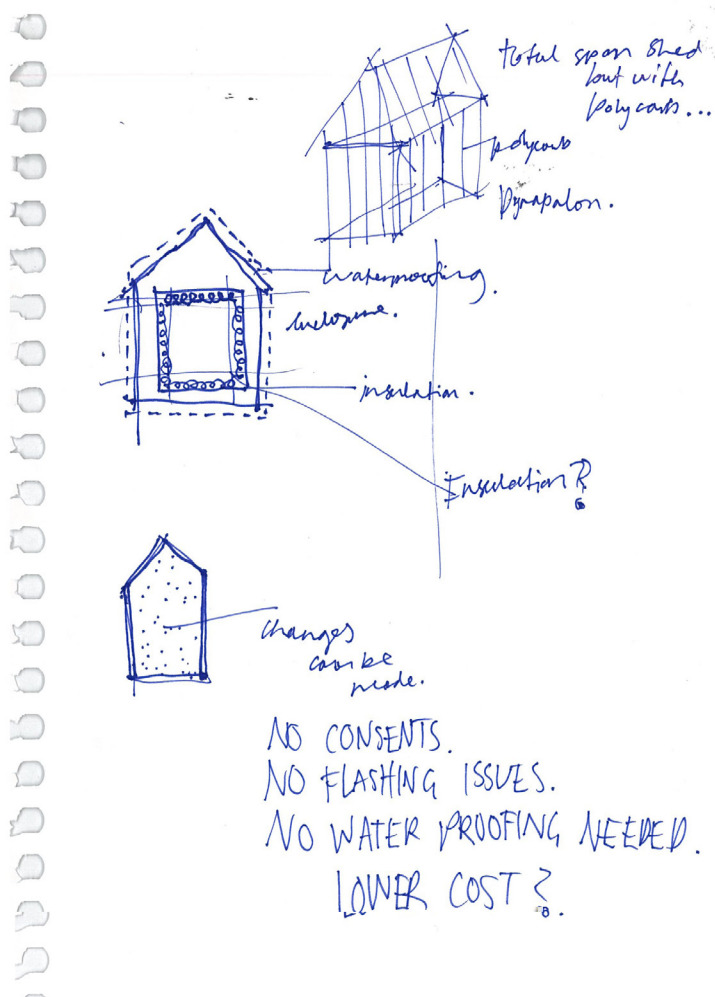 total span shed
but with
polycarb...
polycarb
Dynapalon.
waterproofing.
envelope.
insulation.
Insulation?
changes
can be
made.
NO CONSENTS.
NO FLASHING ISSUES.
NO WATER PROOFING NEEDED.
LOWER COST?